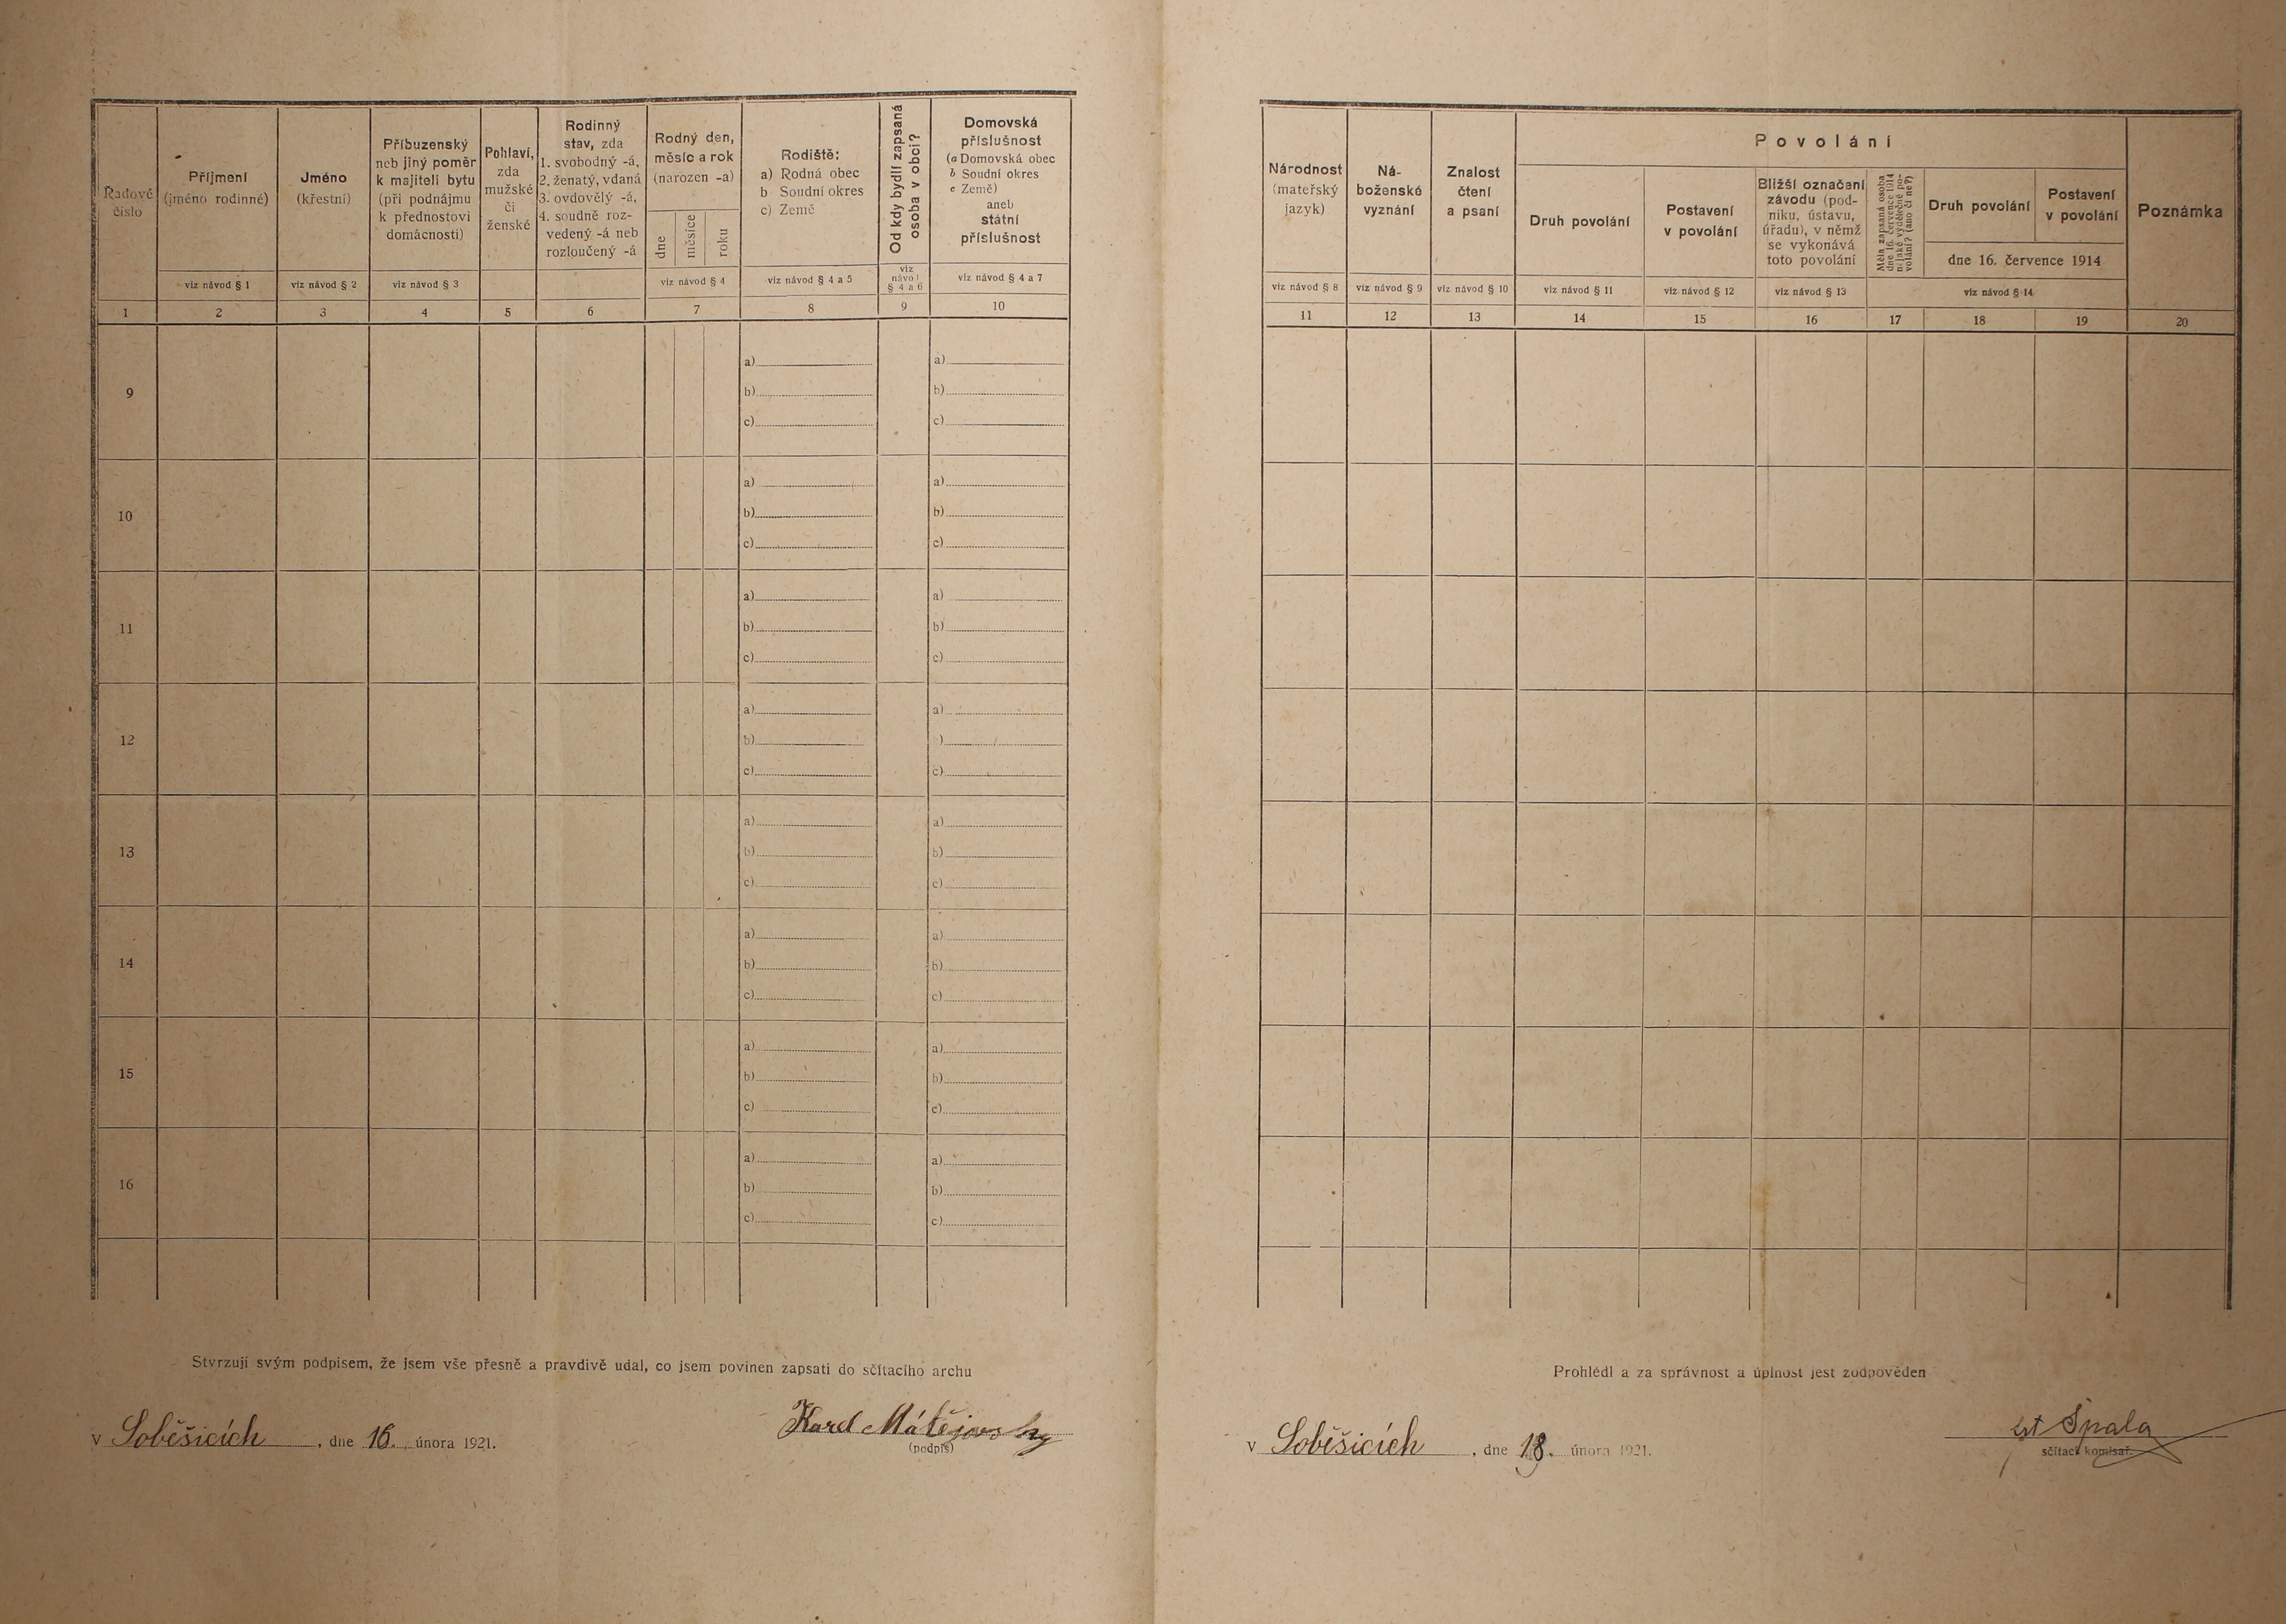 Řadové
číslo
Příjmení
(jméno rodinné)
Jméno
(křestní)
Příbuzenský
neb jiný poměr
k majiteli bytu
(při podnájmu
k přednostovi
domácnosti)
Pohlaví,
zda
mužské
či
ženské
Rodinný
stav, zda
1. svobodný -á,
2. ženatý, vdaná
3. ovdovělý -á,
4. soudně roz-
vedený -á neb
rozloučený -á
Rodný den,
měsíc a rok
(narozen -a)
dne
měsíce
roku
Rodiště:
a) Rodná obec
b Soudní okres
c) Země
Od kdy bydlí zapsaná
osoba v obci?
Domovská
příslušnost
(a Domovská obec
b Soudní okres
c Země)
aneb
státní
příslušnost
viz návod § 1
viz návod § 2
viz návod § 3
viz návod § 4
viz návod § 4 a 5
viz
návod
§ 4 a 6
viz návod § 4 a 7
1 2 3 4 5 6 7 8 9 10
9
a) a)
b) b)
c) c)
10
a) a)
b) b)
c) c)
11
a) a)
b) b)
c) c)
12
a) a)
b) )
c) c)
13
a) a)
b) b)
c) c)
14
a) a)
b) b)
c) c)
15
a) a)
b) b)
c) c)
16
a) a)
b) b)
c) c)
Stvrzuji svým podpisem, že jsem vše přesně a pravdivě udal, co jsem povinen zapsati do sčítacího archu
v Soběšicích, dne 16. února 1921.
Karel Matějovský
(podpis)
Národnost
(mateřský
jazyk)
Ná-
boženské
vyznání
Znalost
čtení
a psaní
Povolání
Druh povolání
Postavení
v povolání
Bližší označení
závodu (pod-
niku, ústavu,
úřadu), v němž
se vykonává
toto povolání
Měla zapsaná osoba
dne 16. července 1914
nějaké výdělečné po-
volání? (ano či ne?)
Druh povolání
Postavení
v povolání
dne 16. července 1914
Poznámka
viz návod § 8
viz návod § 9
viz návod § 10
viz návod § 11
viz návod § 12
viz návod § 13
viz návod § 14
11 12 13 14 15 16 17 18 19 20
Prohlédl a za správnost a úplnost jest zodpověden
v Soběšicích, dne 18. února 1921.
Špala
sčítací komisař.